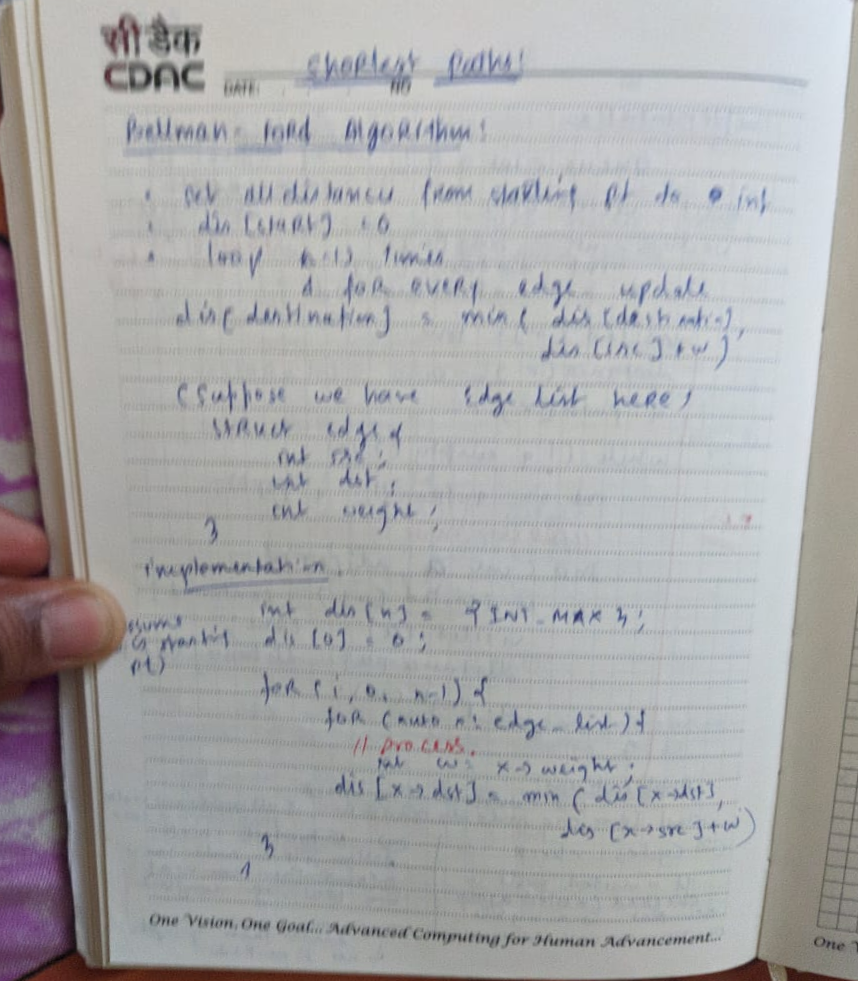 सी डैक
CDAC
DATE: NO
Shortest Paths!
Bellman-Ford Algorithm:
• set all distances from starting pt to inf
• dis [start] = 0
• loop n-1 times
& for every edge update
dis[destination] = min( dis [destination],
dis [src] + w)
(Suppose we have Edge list here,
struct edge {
int src;
int dst;
int weight;
}
implementation
int dis[n] = {INT_MAX};
dis [0] = 0;
pt)
for (i, 0, n-1) {
for (auto x: edge_list) {
// process.
int w = x→weight;
dis [x→dst] = min ( dis [x→dst],
dis [x→src] + w)
}
}
One Vision, One Goal... Advanced Computing for Human Advancement...
One